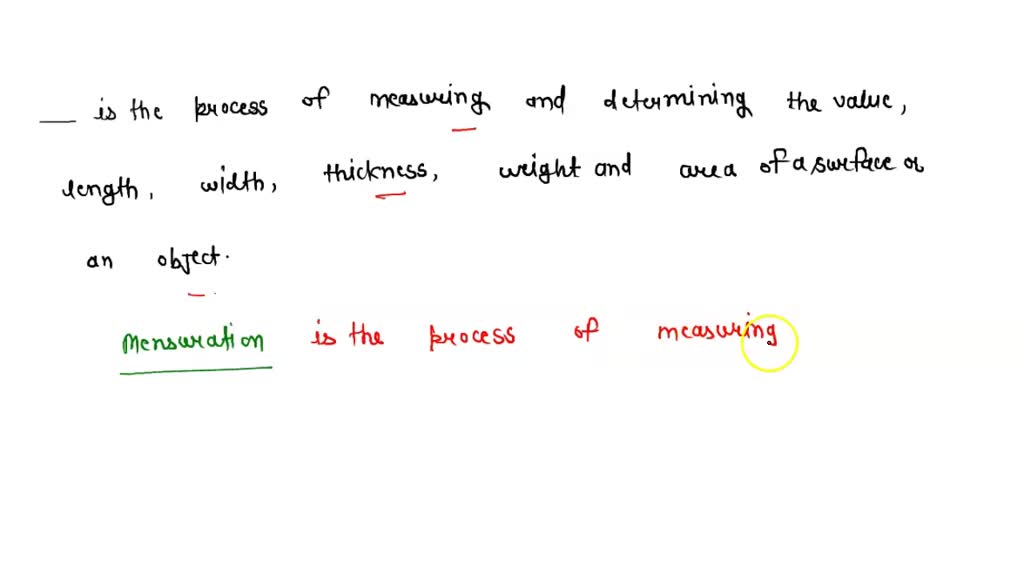 __ is the process of measuring and determining the value,
length, width, thickness, weight and area of a surface or
an object.
Mensuration is the process of measuring